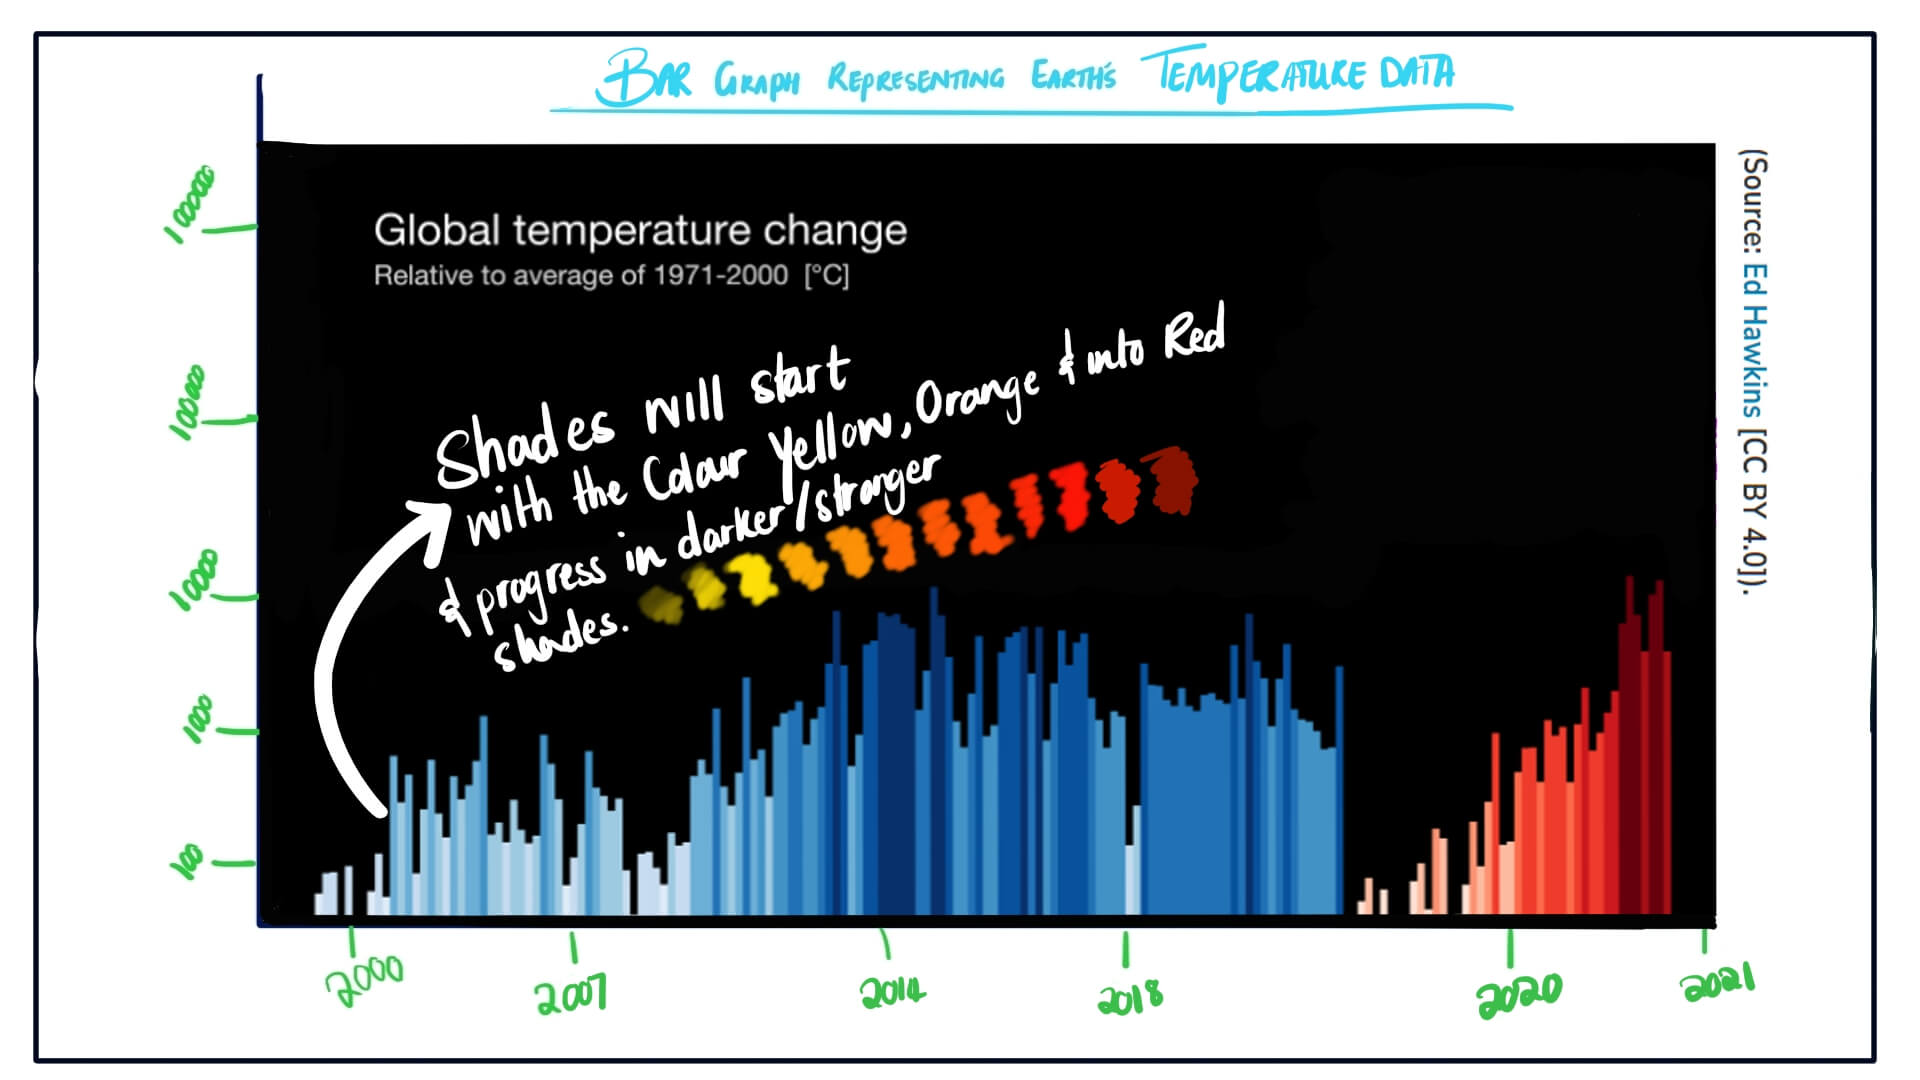 BAR GRAPH REPRESENTING EARTH'S TEMPERATURE DATA
Global temperature change
Relative to average of 1971-2000 [°C]
Shades will start
with the Colour Yellow, Orange & into Red
& progress in darker/stronger
shades.
1000000
100000
10000
1000
100
2000
2007
2014
2018
2020
2021
(Source: Ed Hawkins [CC BY 4.0]).